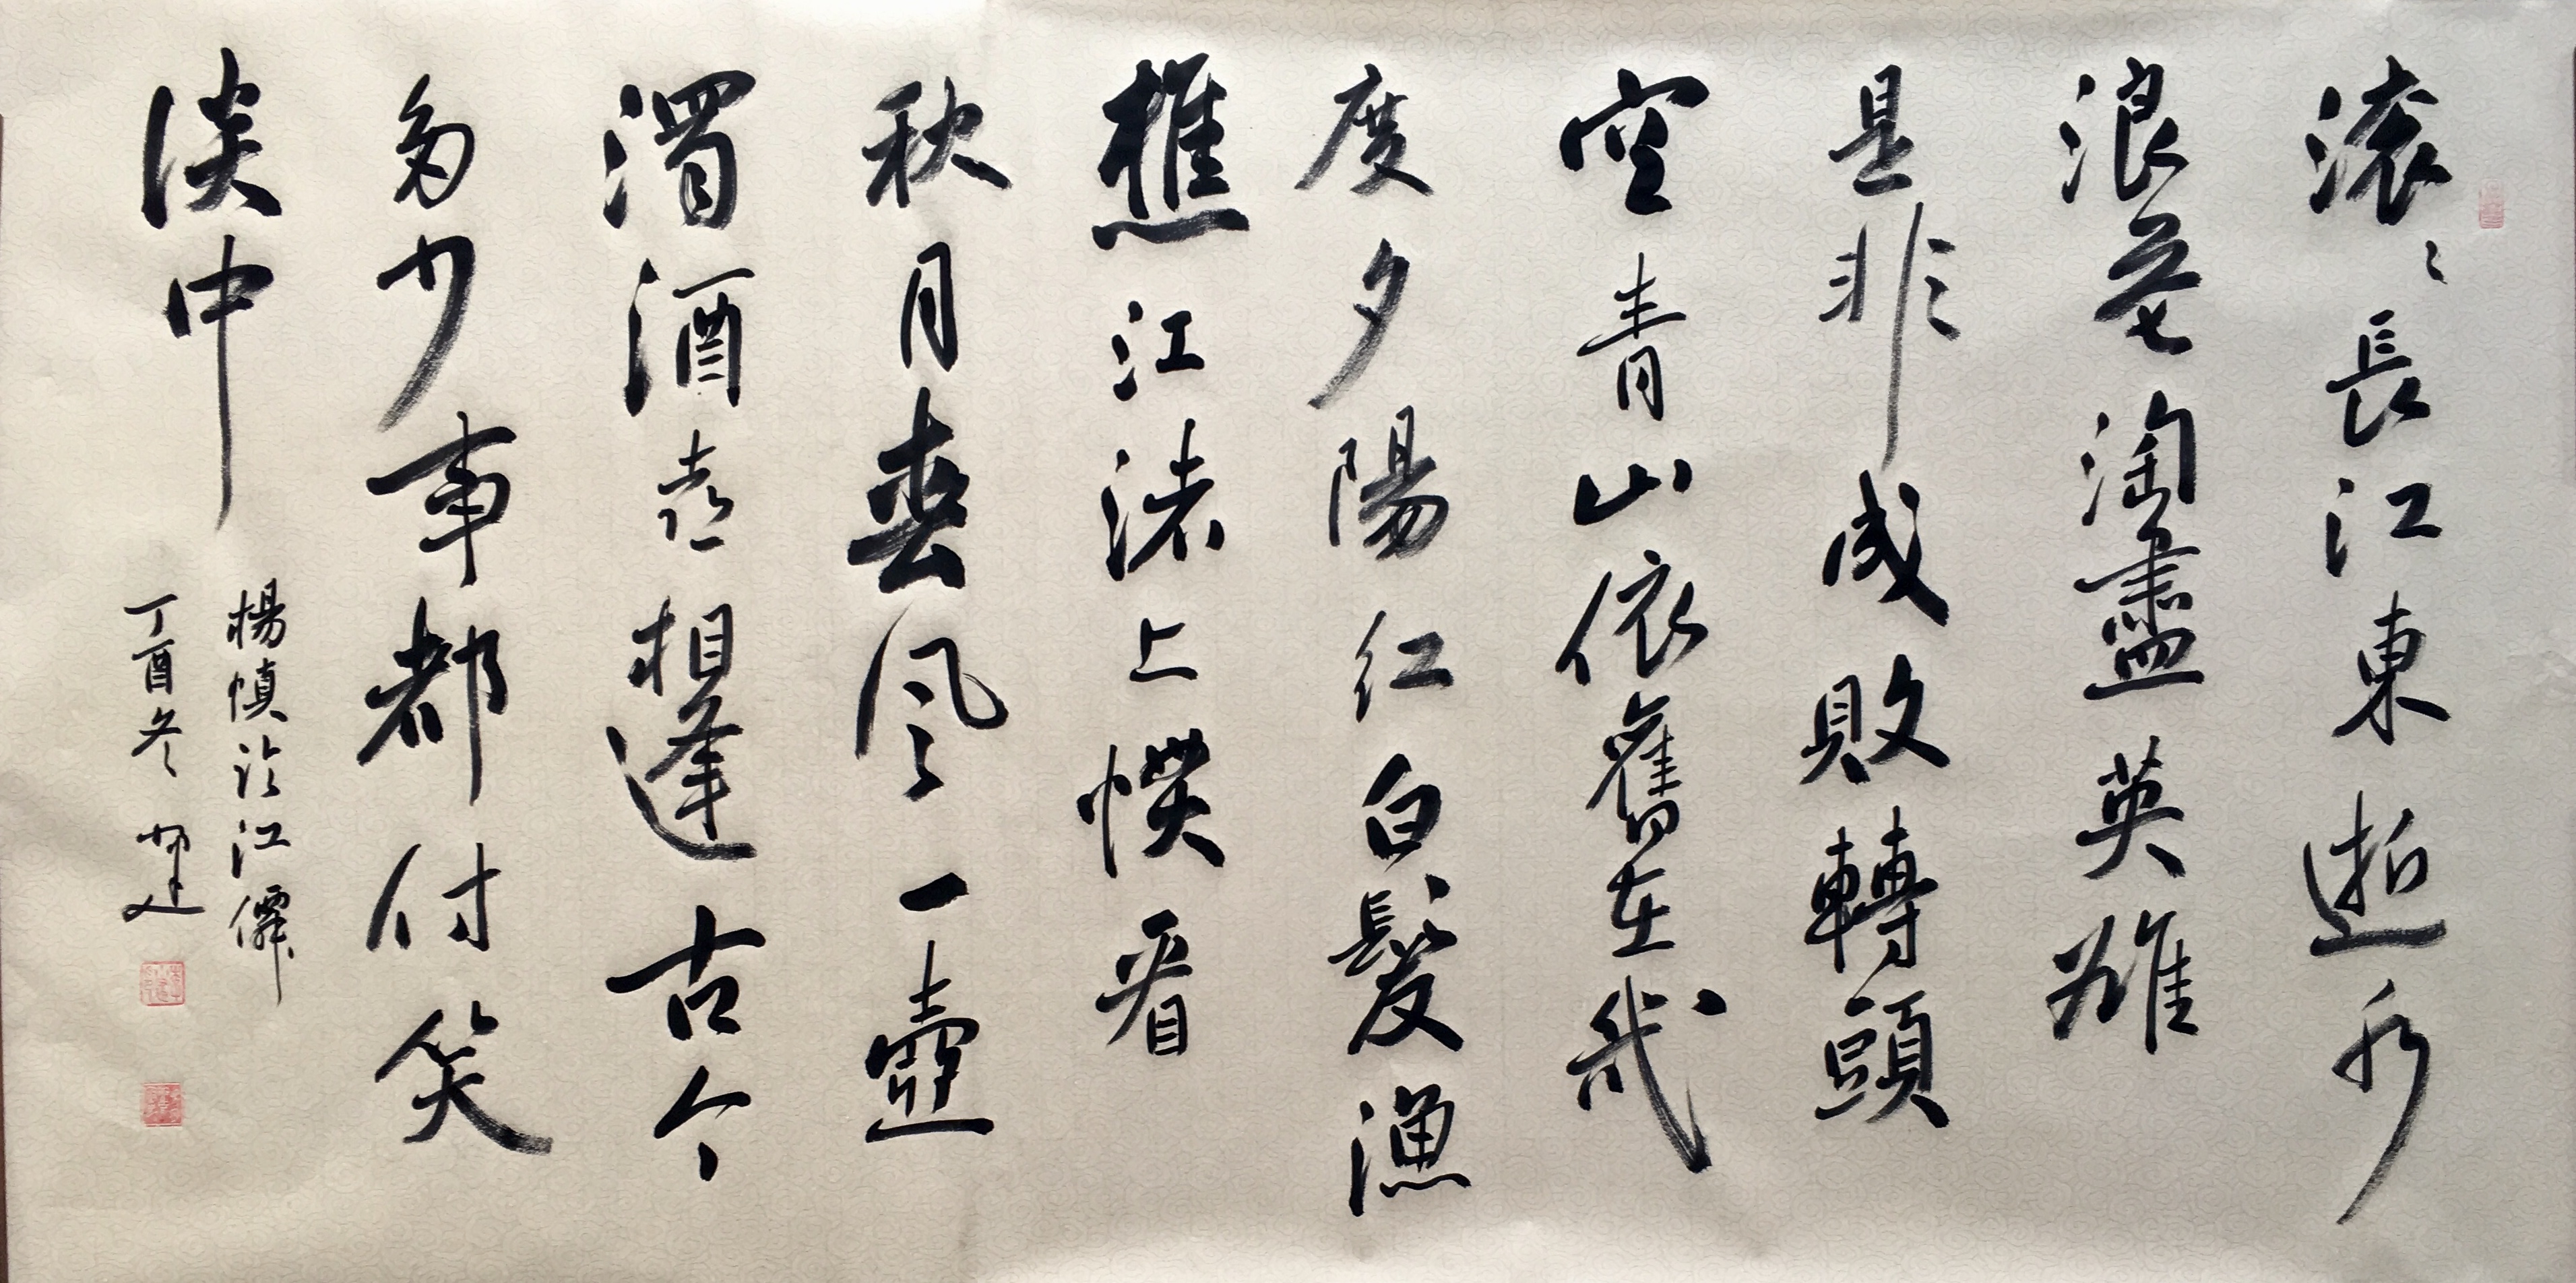 滚〻長江東逝水
浪花淘盡英雄
是非成敗轉頭
空青山依舊在幾
度夕陽紅白髮漁
樵江渚上慣看
秋月春風一壺
濁酒喜相逢古今
多少事都付笑
談中
楊慎臨江僊
丁酉冬